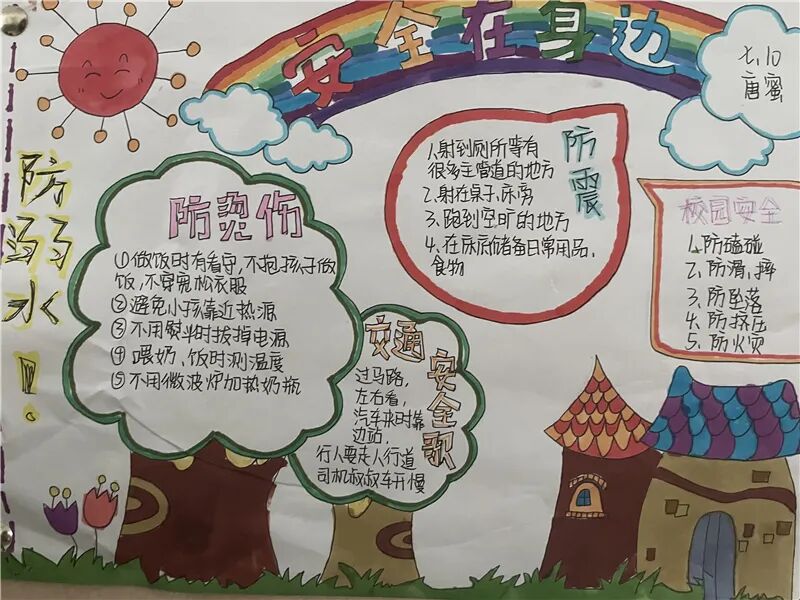 安全在身边
七、10
唐蜜
防溺水!
防烫伤
①做饭时有看守,不抱孩子做
饭,不穿宽松衣服
②避免小孩靠近热源
③不用熨斗时拔掉电源
④喂奶、饭时测温度
⑤不用微波炉加热奶瓶
防震
1.射到厕所等有
很多主管道的地方
2.射在桌子、床旁
3.跑到空旷的地方
4、在床底储备日常用品、
食物
校园安全
1.防磕碰
2.防滑、摔
3.防坠落
4.防挤压
5.防火灾
交通安全歌
过马路,
左右看,
汽车来时靠
边站,
行人要走人行道
司机叔叔车开慢